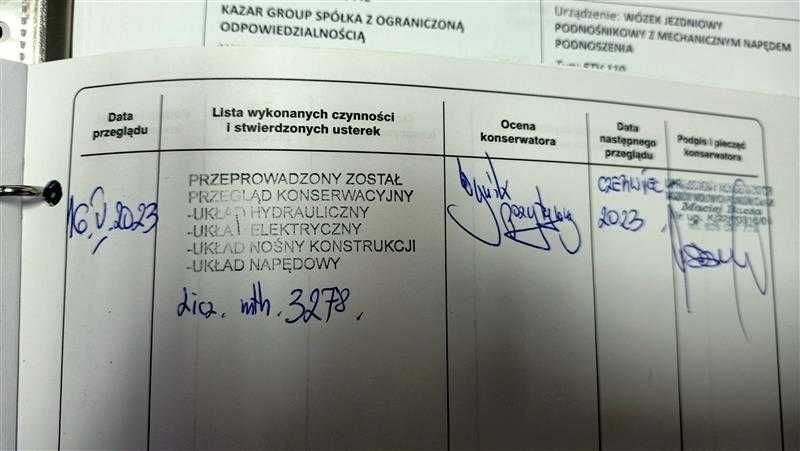 KAZAR GROUP SPÓŁKA Z OGRANICZONĄ
ODPOWIEDZIALNOŚCIĄ
Urządzenie: WÓZEK JEZDNIOWY
PODNOŚNIKOWY Z MECHANICZNYM NAPĘDEM
PODNOSZENIA
Data
przeglądu
Lista wykonanych czynności
i stwierdzonych usterek
Ocena
konserwatora
Data
następnego
przeglądu
Podpis i pieczęć
konserwatora
16.V.2023
PRZEPROWADZONY ZOSTAŁ
PRZEGLĄD KONSERWACYJNY
-UKŁAD HYDRAULICZNY
-UKŁAD ELEKTRYCZNY
-UKŁAD NOŚNY KONSTRUKCJI
-UKŁAD NAPĘDOWY
Licz. mth. 3278.
Wynik
pozytywny
CZERWIEC
2023
Maciej